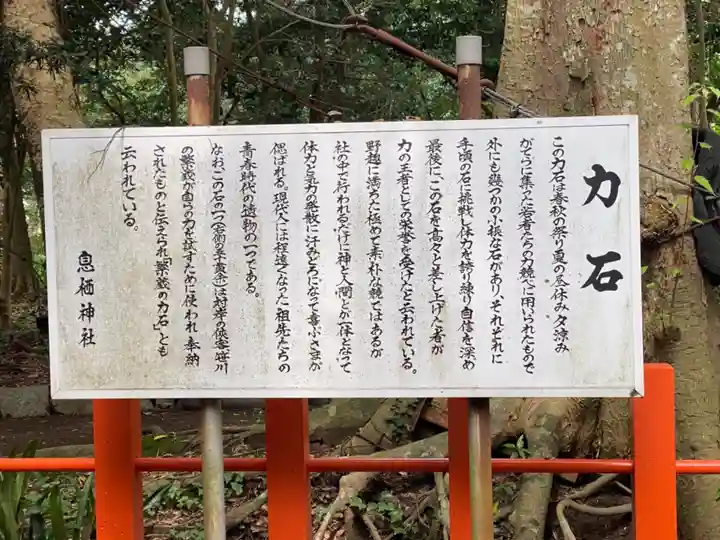 力石
この力石は春秋の祭り夏の昼休み夕涼み
がてらに集った若者たちの力競べに用いられたもので
外にも幾つかの小振な石があり、それぞれに
手頃の石に挑戦し体力を誇り練り自信を深め
最後に、この石を高々と差し上げた者が
力の王者としての栄誉を受けたと云われている。
野趣に満ちた極めて素朴な競技ではあるが
社の中で行われるだけに神と人間とが一体となって
体力と気力の発散に汗みどろになって喜ぶさまが
偲ばれる。現代人には程遠くなった祖先たちの
青春時代の遺物の一つである。
なお、この石の一つは対岸の侠客笹川
の繁蔵が自らの力を試すために使われ奉納
されたものと伝えられ「繁蔵の力石」とも
云われている。
息栖神社